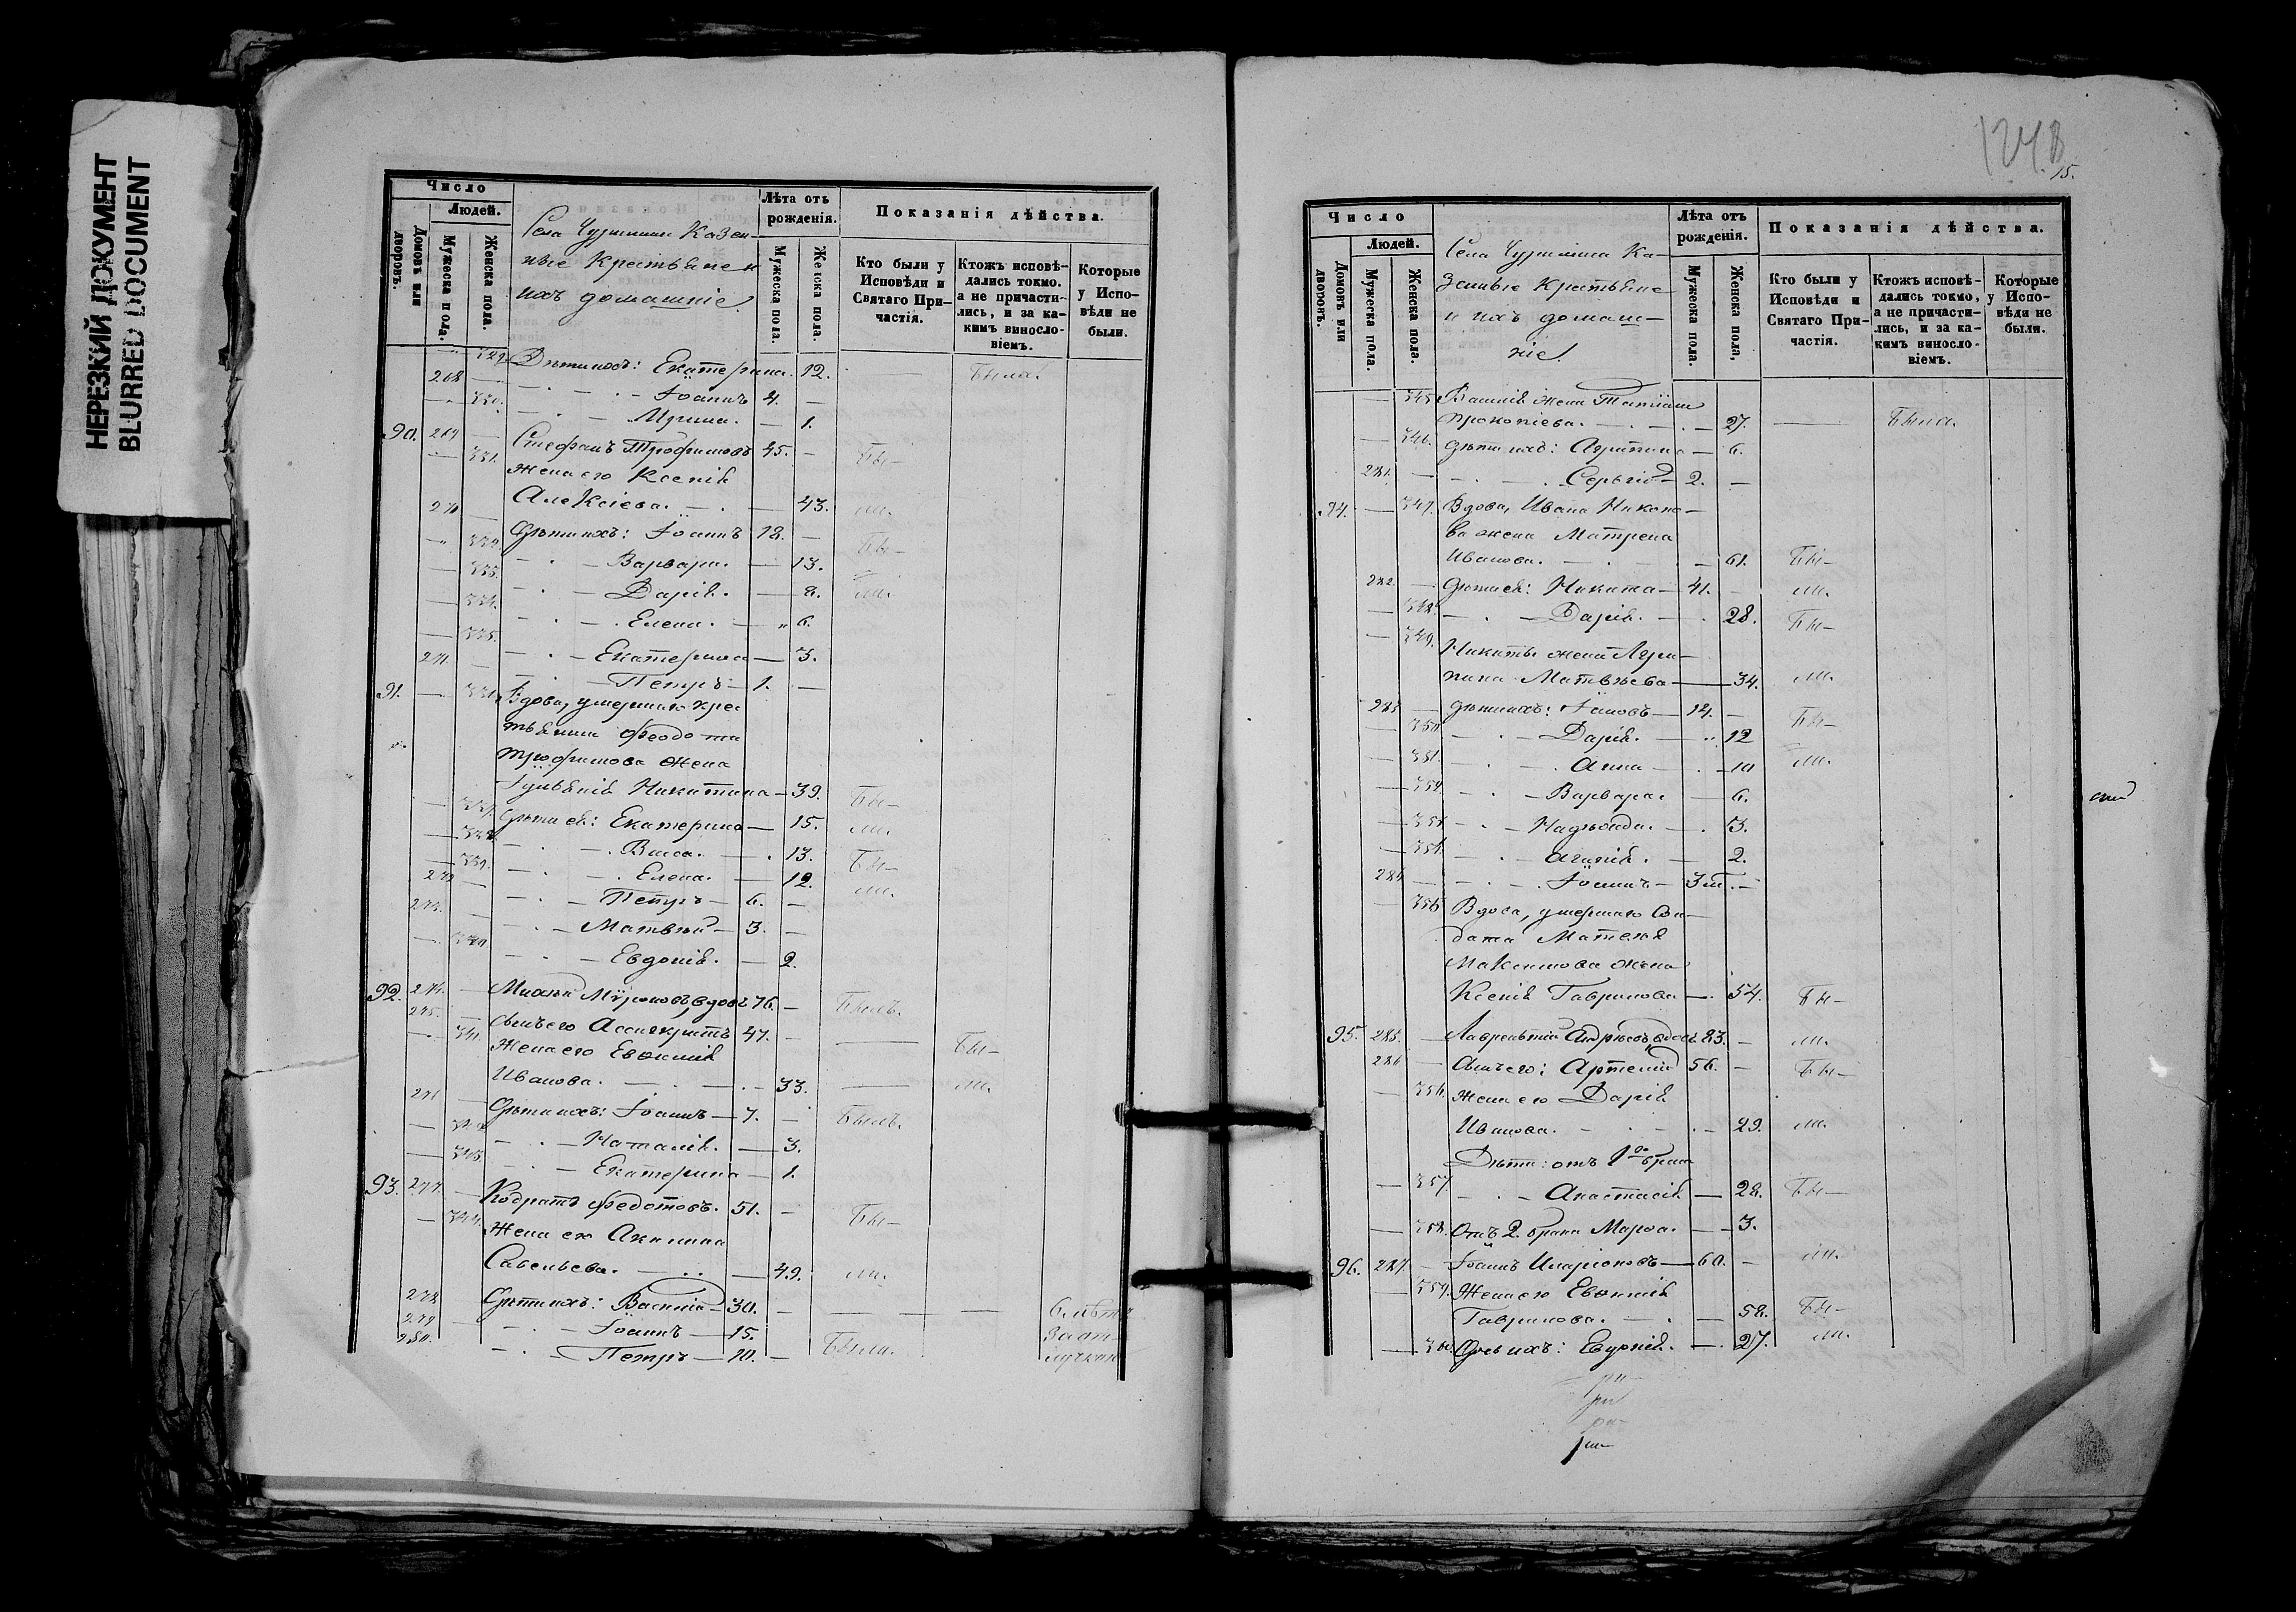 НЕРЕЗКИЙ ДОКУМЕНТ
BLURRED DOCUMENT
Число
Людей.
Домовъ или дворовъ.
Мужеска пола.
Женска пола.
Казен-
ные Крестьяне и
ихъ домашніе.
Лѣта отъ рожденія.
Мужеска пола.
Женска пола.
Показанія дѣйства.
Кто были у Исповѣди и Святаго Причастія.
Ктожъ исповѣ-дались токмо. а не причасти-лись, и за ка-кимъ винословіемъ.
Которые у Испо-вѣди не были.
329. Дѣти ихъ: Екатерина. 12. Была.
268 Іоаннъ 4.
330. Ирина. 1.
90. 269 Стефанъ Трофимовъ 45. Бы-
331. Жена его Ксенія
Алексіева. 43. ли.
270 Дѣти ихъ: Іоаннъ 18. Бы-
332. Варвара. 13.
333. Дарія. 8. ли.
334. Елена. 6.
335. Екатерина 3.
271. Петръ 1.
91. 336. Вдова, умершаго крес
тьянина Феодота
Трофимова жена
Іуліанія Никитина 39. Бы-
337. Дѣти ея: Екатерина 15. ли.
338. Васса. 13. Бы-
339. Елена. 12. ли.
272 Петръ 6.
273. Матвѣй 3.
340. Евдокія. 2.
92. 274. вдовъ 76. Былъ.
275. Сынъ его Ассигкритъ 47. Бы-
341. Жена его Евфимія
Иванова. 33. ли.
276 Дѣти ихъ: Іоаннъ 7. Былъ.
342 Наталія. 3.
343. Екатерина 1.
93. 277. Кодратъ Федотовъ. 51. Бы-
344. Жена его Акилина
Савельева. 49. ли.
278 Дѣти ихъ: Василій 30.
279 Іоаннъ 15.
280. Петръ 10. Были.
124 В
15.
Число
Людей.
Домовъ или дворовъ.
Мужеска пола.
Женска пола.
Ка-
зенные Крестьяне
и ихъ домаш-
ніе.
Лѣта отъ рожденія.
Мужеска пола.
Женска пола,
Показанія дѣйства.
Кто были у Исповѣди и Святаго При-частія.
Ктожъ исповѣ-дались токмо, а не причасти-лись, и за ка-кимъ винослo-віемъ.
Которые у Испо-вѣди не были.
345. Василія жена Татіана
Прокопіева. 27. Была.
346. Дѣти ихъ: Агрипина 6.
281. Сергій 2.
94. 347. Вдова, Ивана Никоно-
ва жена Матрена
Иванова. 61. Бы-
282. Дѣти ея: Никита 41. ли.
348. Дарія. 28. Бы-
349. Никиты жена Агри-
пина Матвѣева 34. ли.
283 Дѣти ихъ: Іаковъ 14. Бы-
350. Дарія. 12
351. Анна 10 ли.
352. Варвара. 6.
353 Надежда. 3.
354. 2.
284 Іоаннъ 3 м.
355 Вдова, умершаго Сол-
дата Матвѣя
Максимова жена
Ксенія Гаврилова 54. Бы-
95. 285. Лаврентій Андреевъ, вдовъ 83. ли.
286 Сынъ его: Артемій 56. Бы-
356. Жена его Дарія
Иванова. 29. ли.
Дѣти: отъ 1го брака
357. Анастасія 28. Бы-
358. Отъ 2. брака Марѳа. 3.
96. 287. Іоаннъ Иларіоновъ 60. ли.
359. Жена его Евфимія
Гаврилова. 58. Бы-
360. Дочь ихъ: Евдокія. 27. ли.